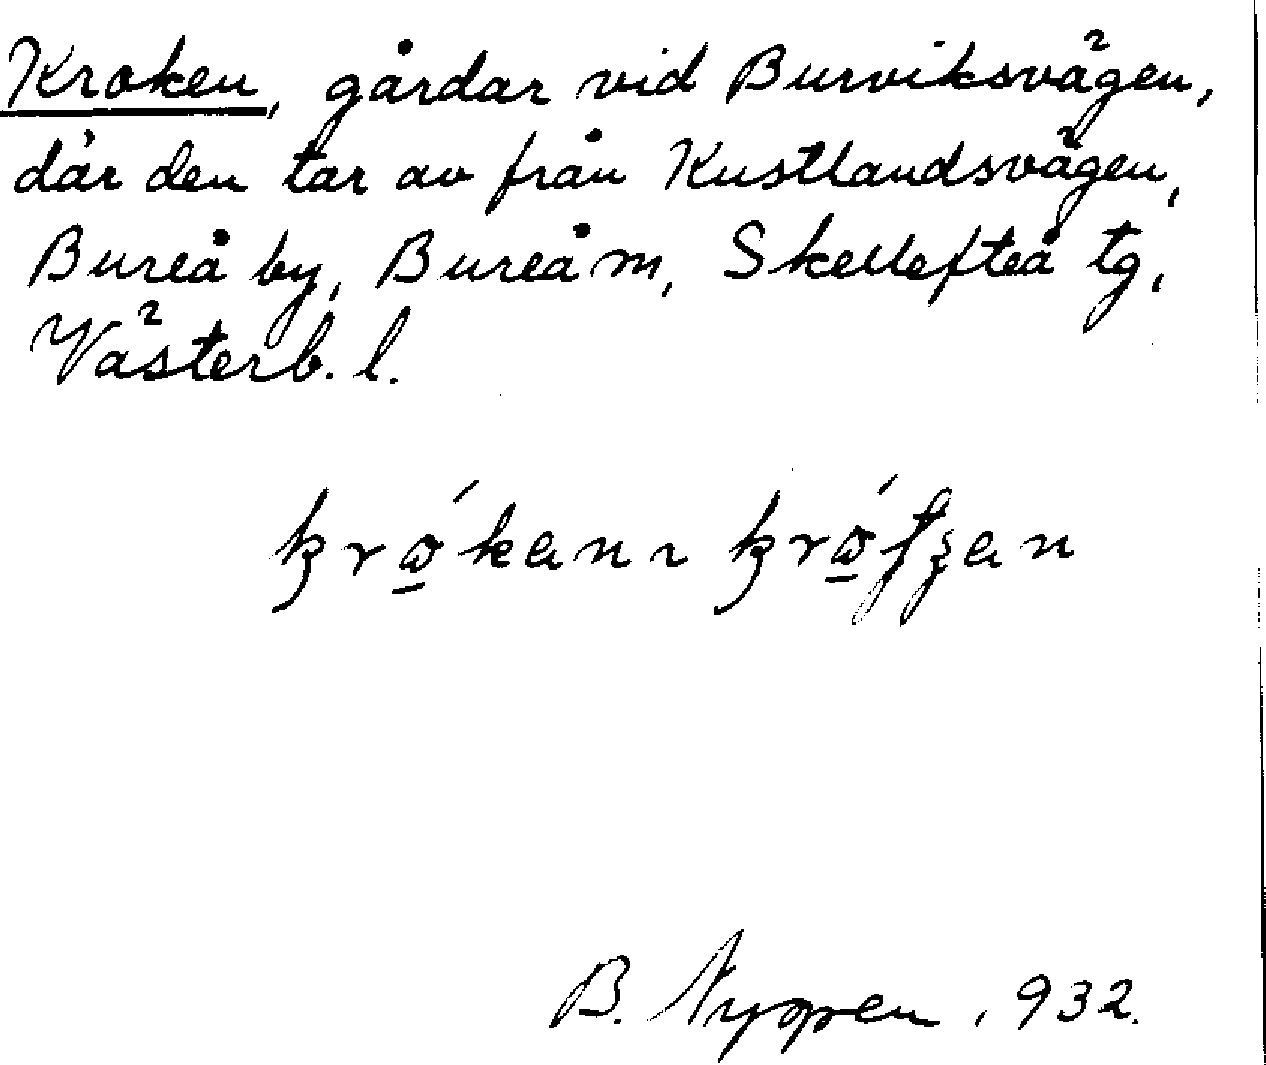 Kroken, gårdar vid Burviksvägen,
där den tar av från Kustlandsvägen,
Bureå by, Bureå m, Skellefteå tg,
Västerb. l.
B. Nygren, 932.